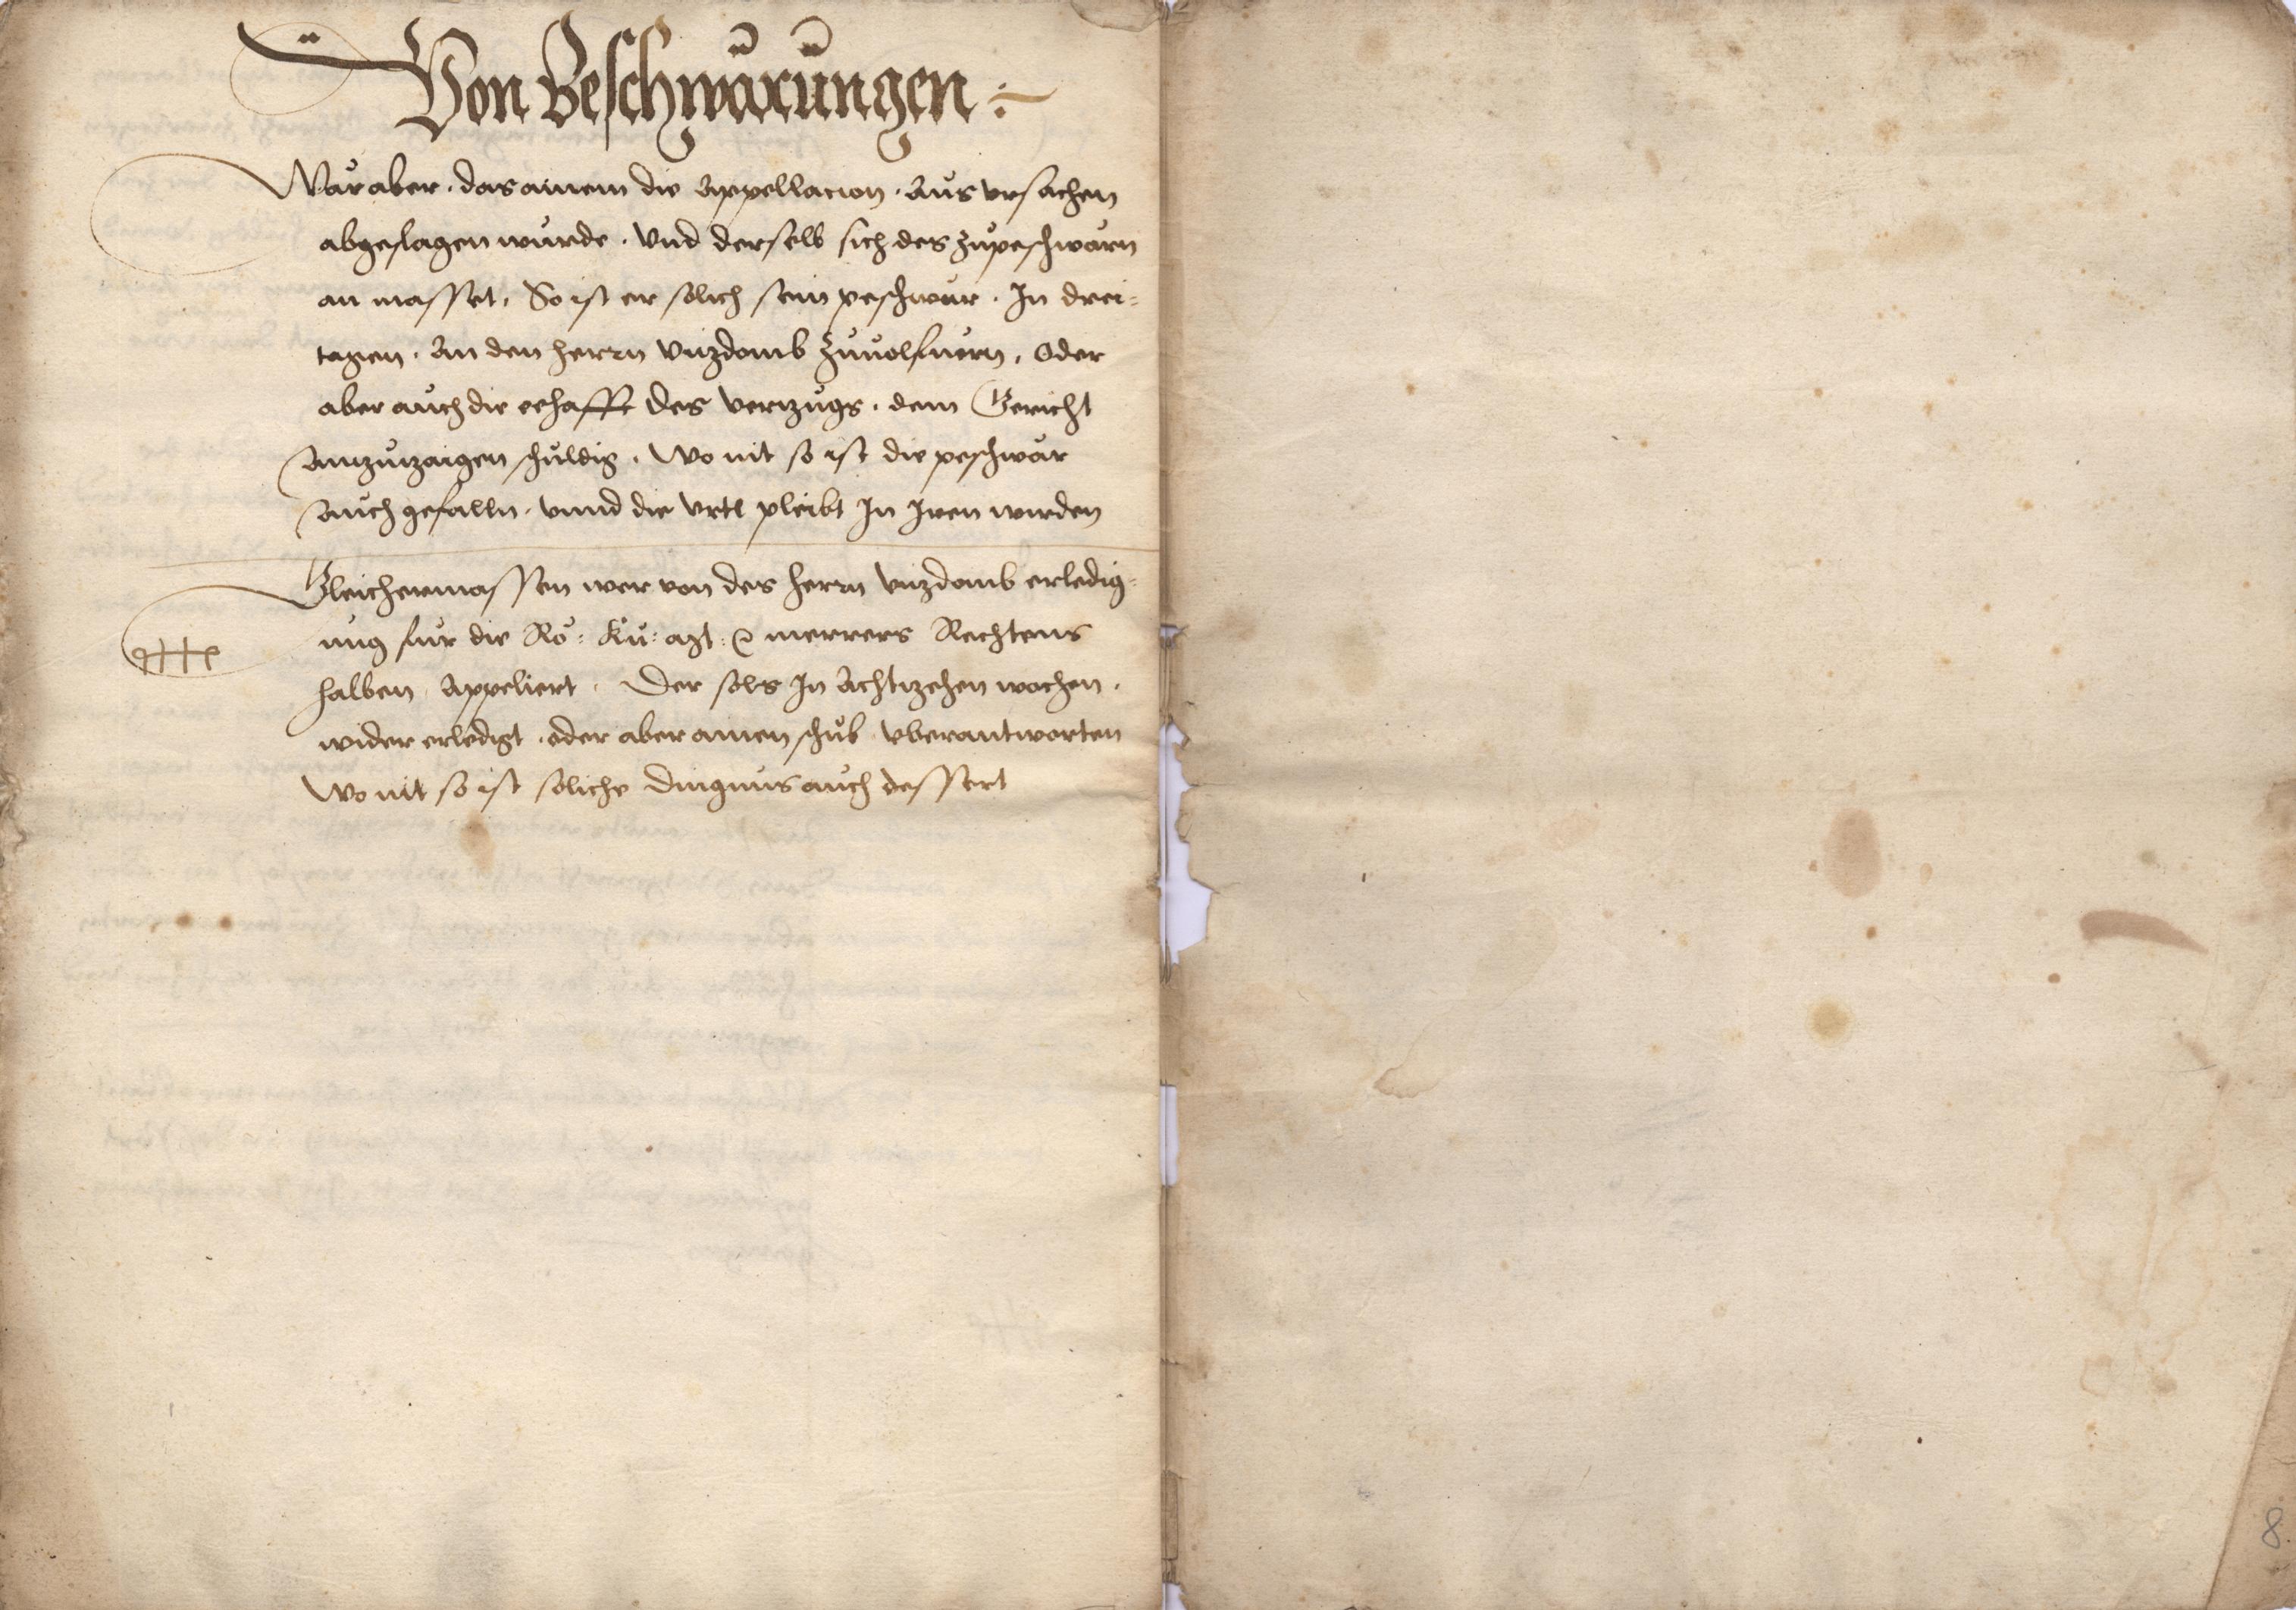 Von Beschwärungen :~
Wär aber . das ainem die Appellacion . Aus vrsachen
abgeslagen wurde . Vnd derselb sich des zupeschwärn
an masset, So ist er solich sein peschwär . In drei=
tagen . An den herrn Vitzdomb zuuolfuern, Oder
aber auch die eehafft des vertzugs . dem Gericht
antzutzaigen schuldig . Wo nit so ist die peschwär
auch gefalln . vnnd die vrtl pleibt In Iren wirden
Gleichermassen wer von des herrn vitzdomb erledig=
ung fur die Rö: Kü: mt: merrers Rechtens
halben Appeliert . Der sols In Achtzehen wochen .
wider erledigt . oder aber ainen schub vberantworten
Wo nit so ist soliche dingnus auch dessert
8